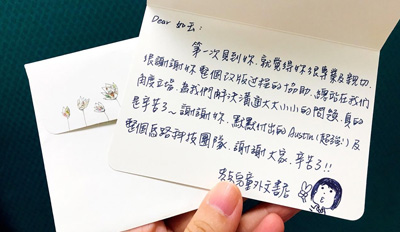 Dear 如云：
第一次見到妳，就覺得妳很專業及親切，
很謝謝妳整個改版過程的協助，總站在我們
角度立場，為我們解決溝通大大小小的問題，真的
是辛苦了～謝謝妳，默默付出的Austin(超強!)及
整個底路科技團隊，謝謝大家，辛苦了!!
兒童外文書店